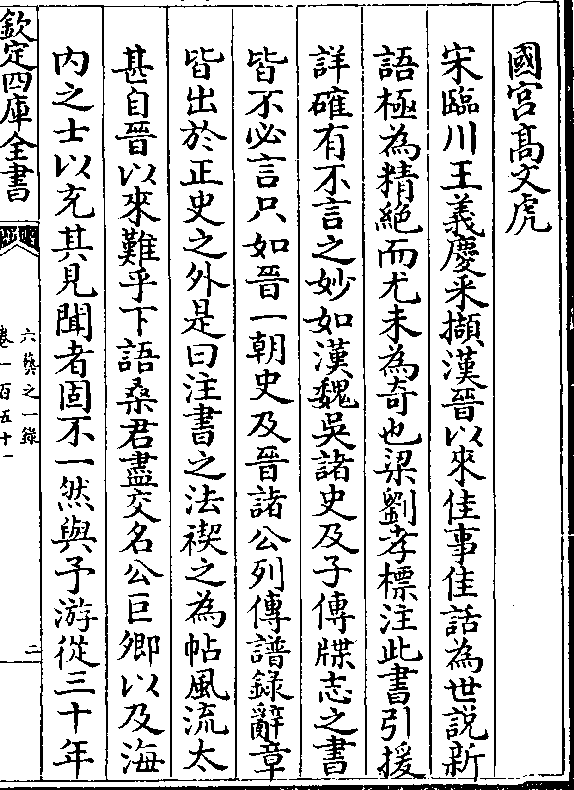 國宫髙文虎
宋臨川王義慶采擷漢晉以來佳事佳話為世説新
語極為精絶而尤未為奇也梁劉孝標注此書引援
詳確有不言之妙如漢魏吳諸史及子傳牒志之書
皆不必言只如晉一朝史及晉諸公列傳譜錄辭章
皆出於正史之外是曰注書之法禊之為帖風流太
甚自晉以來難乎下語桑君盡交名公巨卿以及海
内之士以充其見聞者固不一然與予游從三十年
欽定四庫全書
六藝之一錄
卷一百五十一
二